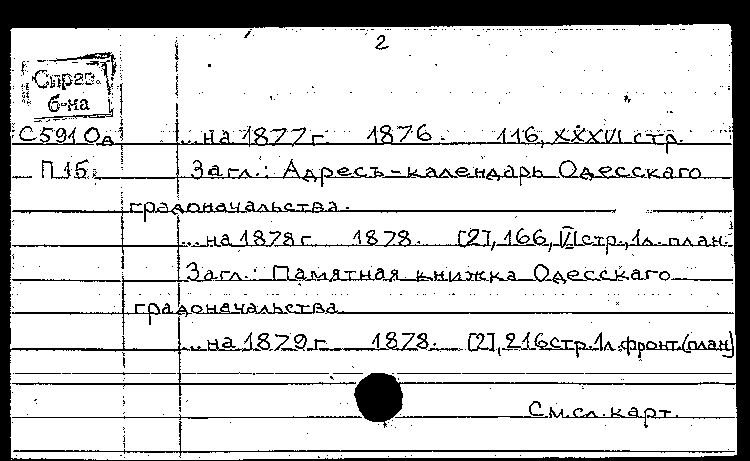 2
Справ.
б-ка
С591 Од
П15
...на 1877г. 1876. 116, XXXVI стр.
Загл.: Адресъ-календарь Одесскаго
градоначальства.
...на 1878г. 1878. [2], 166, VI стр., 1л. план.
Загл.: Памятная книжка Одесскаго
градоначальства.
...на 1879г. 1878. [2], 216стр. 1л. фронт.(план)
См.сл.карт.